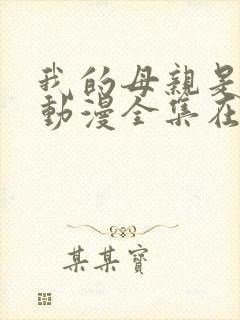 我的母親是
動漫全集在
某某寶